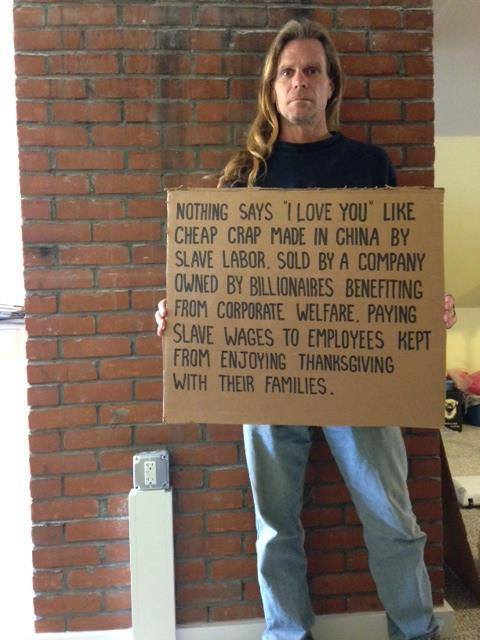 NOTHING SAYS "I LOVE YOU" LIKE
CHEAP CRAP MADE IN CHINA BY
SLAVE LABOR. SOLD BY A COMPANY
OWNED BY BILLIONAIRES BENEFITING
FROM CORPORATE WELFARE. PAYING
SLAVE WAGES TO EMPLOYEES KEPT
FROM ENJOYING THANKSGIVING
WITH THEIR FAMILIES.